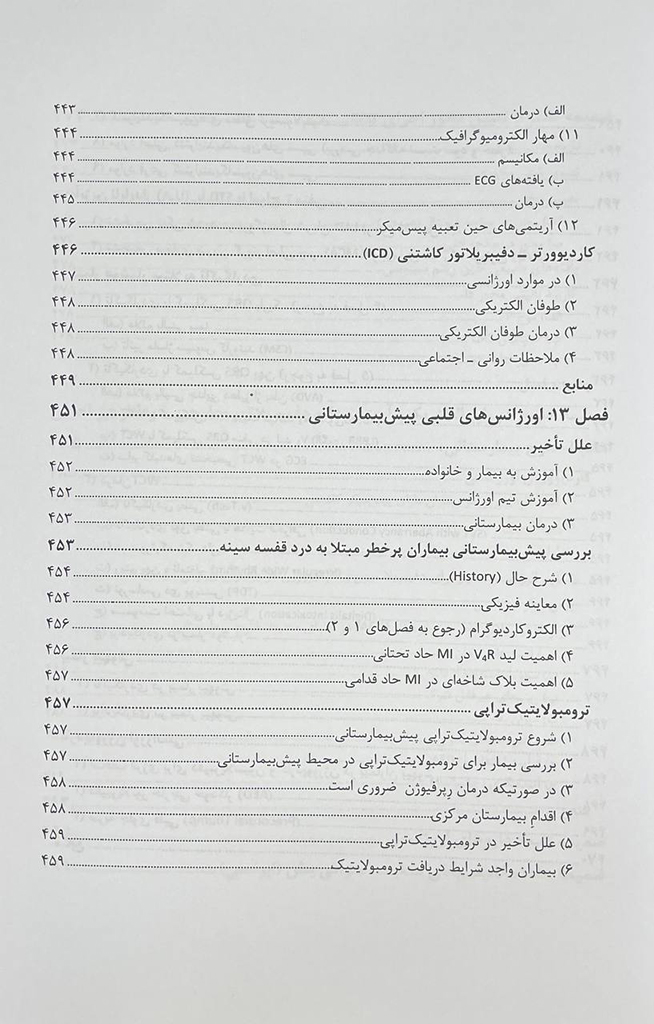 الف) درمان ........ ۴۴۳
۱۱) مهار الکترومیوگرافیک ........ ۴۴۴
الف) مکانیسم ........ ۴۴۴
ب) یافته‌های ECG ........ ۴۴۴
پ) درمان ........ ۴۴۵
۱۲) آریتمی‌های حین تعبیه پیس‌میکر ........ ۴۴۶
کاردیوورتر – دفیبریلاتور کاشتنی (ICD) ........ ۴۴۶
۱) در موارد اورژانسی ........ ۴۴۷
۲) طوفان الکتریکی ........ ۴۴۸
۳) درمان طوفان الکتریکی ........ ۴۴۸
۴) ملاحظات روانی – اجتماعی ........ ۴۴۸
منابع ........ ۴۴۹
فصل ۱۳: اورژانس‌های قلبی پیش‌بیمارستانی ........ ۴۵۱
علل تأخیر ........ ۴۵۱
۱) آموزش به بیمار و خانواده ........ ۴۵۲
۲) آموزش تیم اورژانس ........ ۴۵۲
۳) درمان بیمارستانی ........ ۴۵۳
بررسی پیش‌بیمارستانی بیماران پرخطر مبتلا به درد قفسه سینه ........ ۴۵۳
۱) شرح حال (History) ........ ۴۵۴
۲) معاینه فیزیکی ........ ۴۵۴
۳) الکتروکاردیوگرام (رجوع به فصل‌های ۱ و ۲) ........ ۴۵۶
۴) اهمیت لید V₄R در MI حاد تحتانی ........ ۴۵۶
۵) اهمیت بلاک شاخه‌ای در MI حاد قدامی ........ ۴۵۷
ترومبولایتیک‌تراپی ........ ۴۵۷
۱) شروع ترومبولایتیک‌تراپی پیش‌بیمارستانی ........ ۴۵۷
۲) بررسی بیمار برای ترومبولایتیک‌تراپی در محیط پیش‌بیمارستانی ........ ۴۵۷
۳) در صورتیکه درمان رِپرفیوژن ضروری است ........ ۴۵۸
۴) اقدامِ بیمارستان مرکزی ........ ۴۵۸
۵) علل تأخیر در ترومبولایتیک‌تراپی ........ ۴۵۹
۶) بیماران واجد شرایط دریافت ترومبولایتیک ........ ۴۵۹